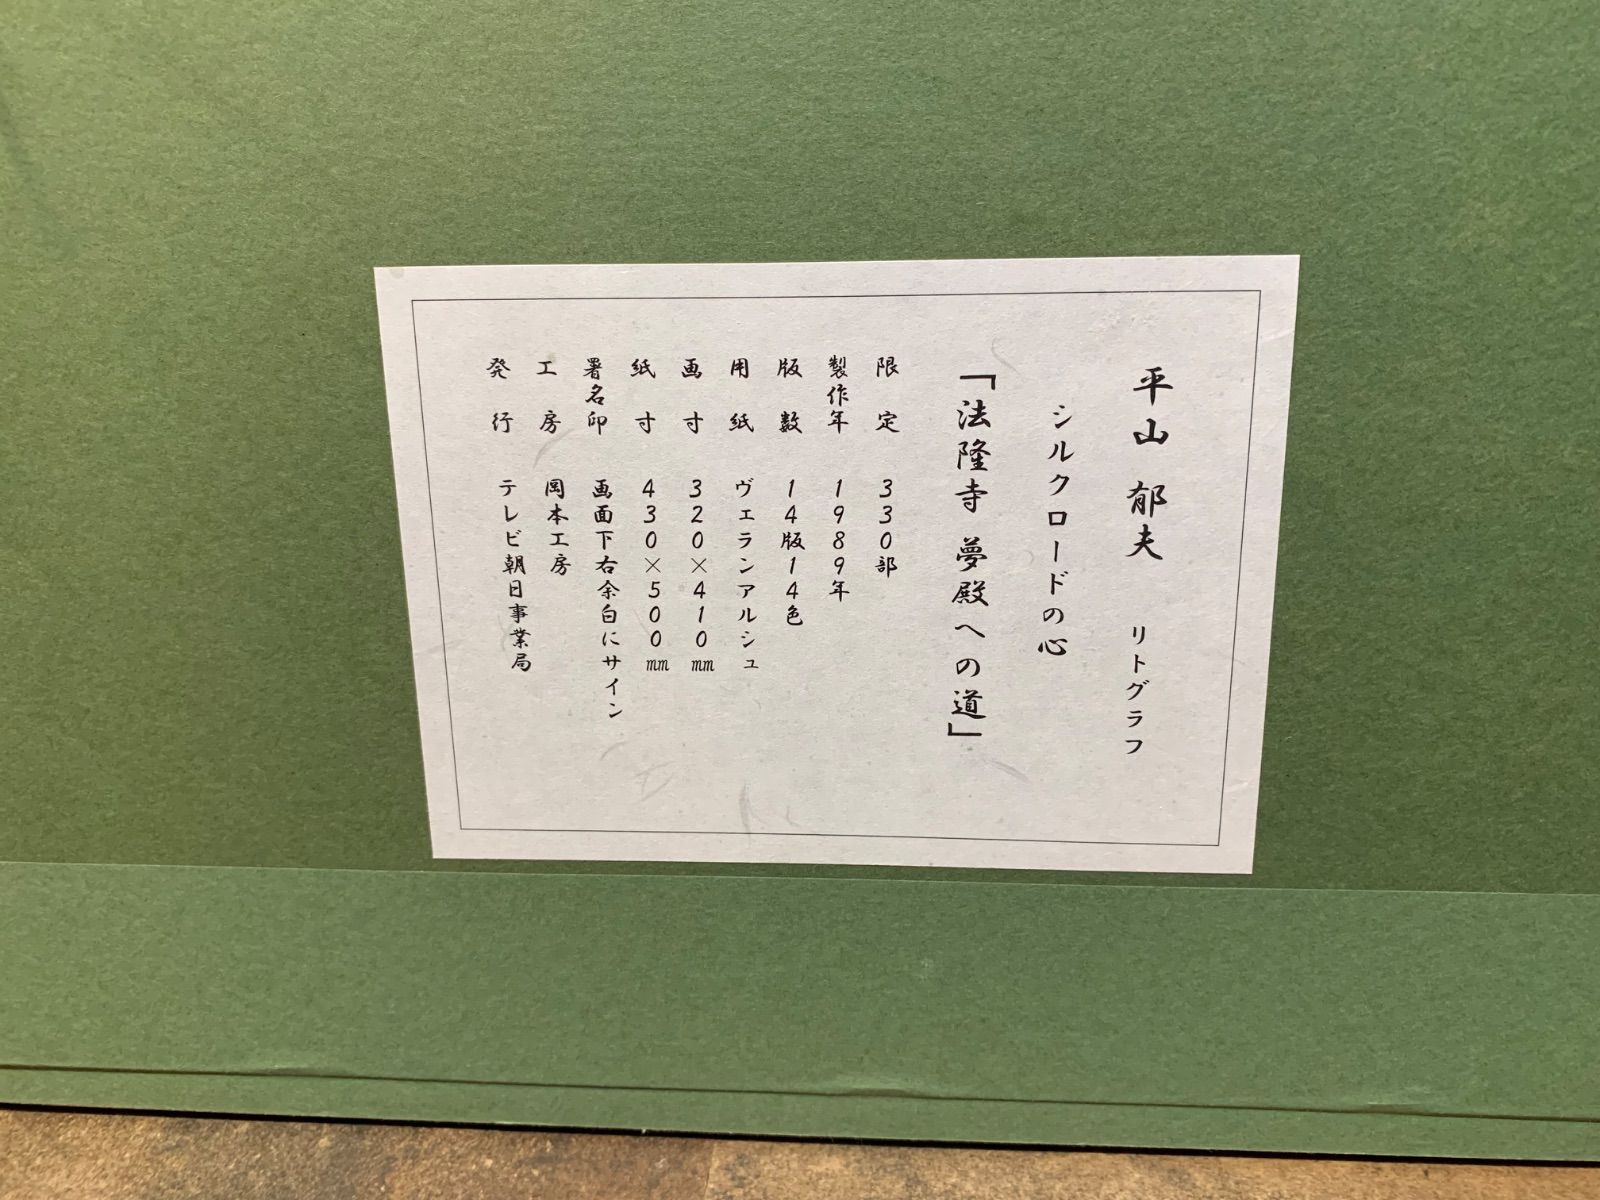 平山 郁夫 リトグラフ
シルクロードの心
「法隆寺 夢殿への道」
限定 330部
製作年 1989年
版数 14版14色
用紙 ヴェランアルシュ
画寸 320×410㎜
紙寸 430×500㎜
署名印 画面下右余白にサイン
工房 岡本工房
発行 テレビ朝日事業局